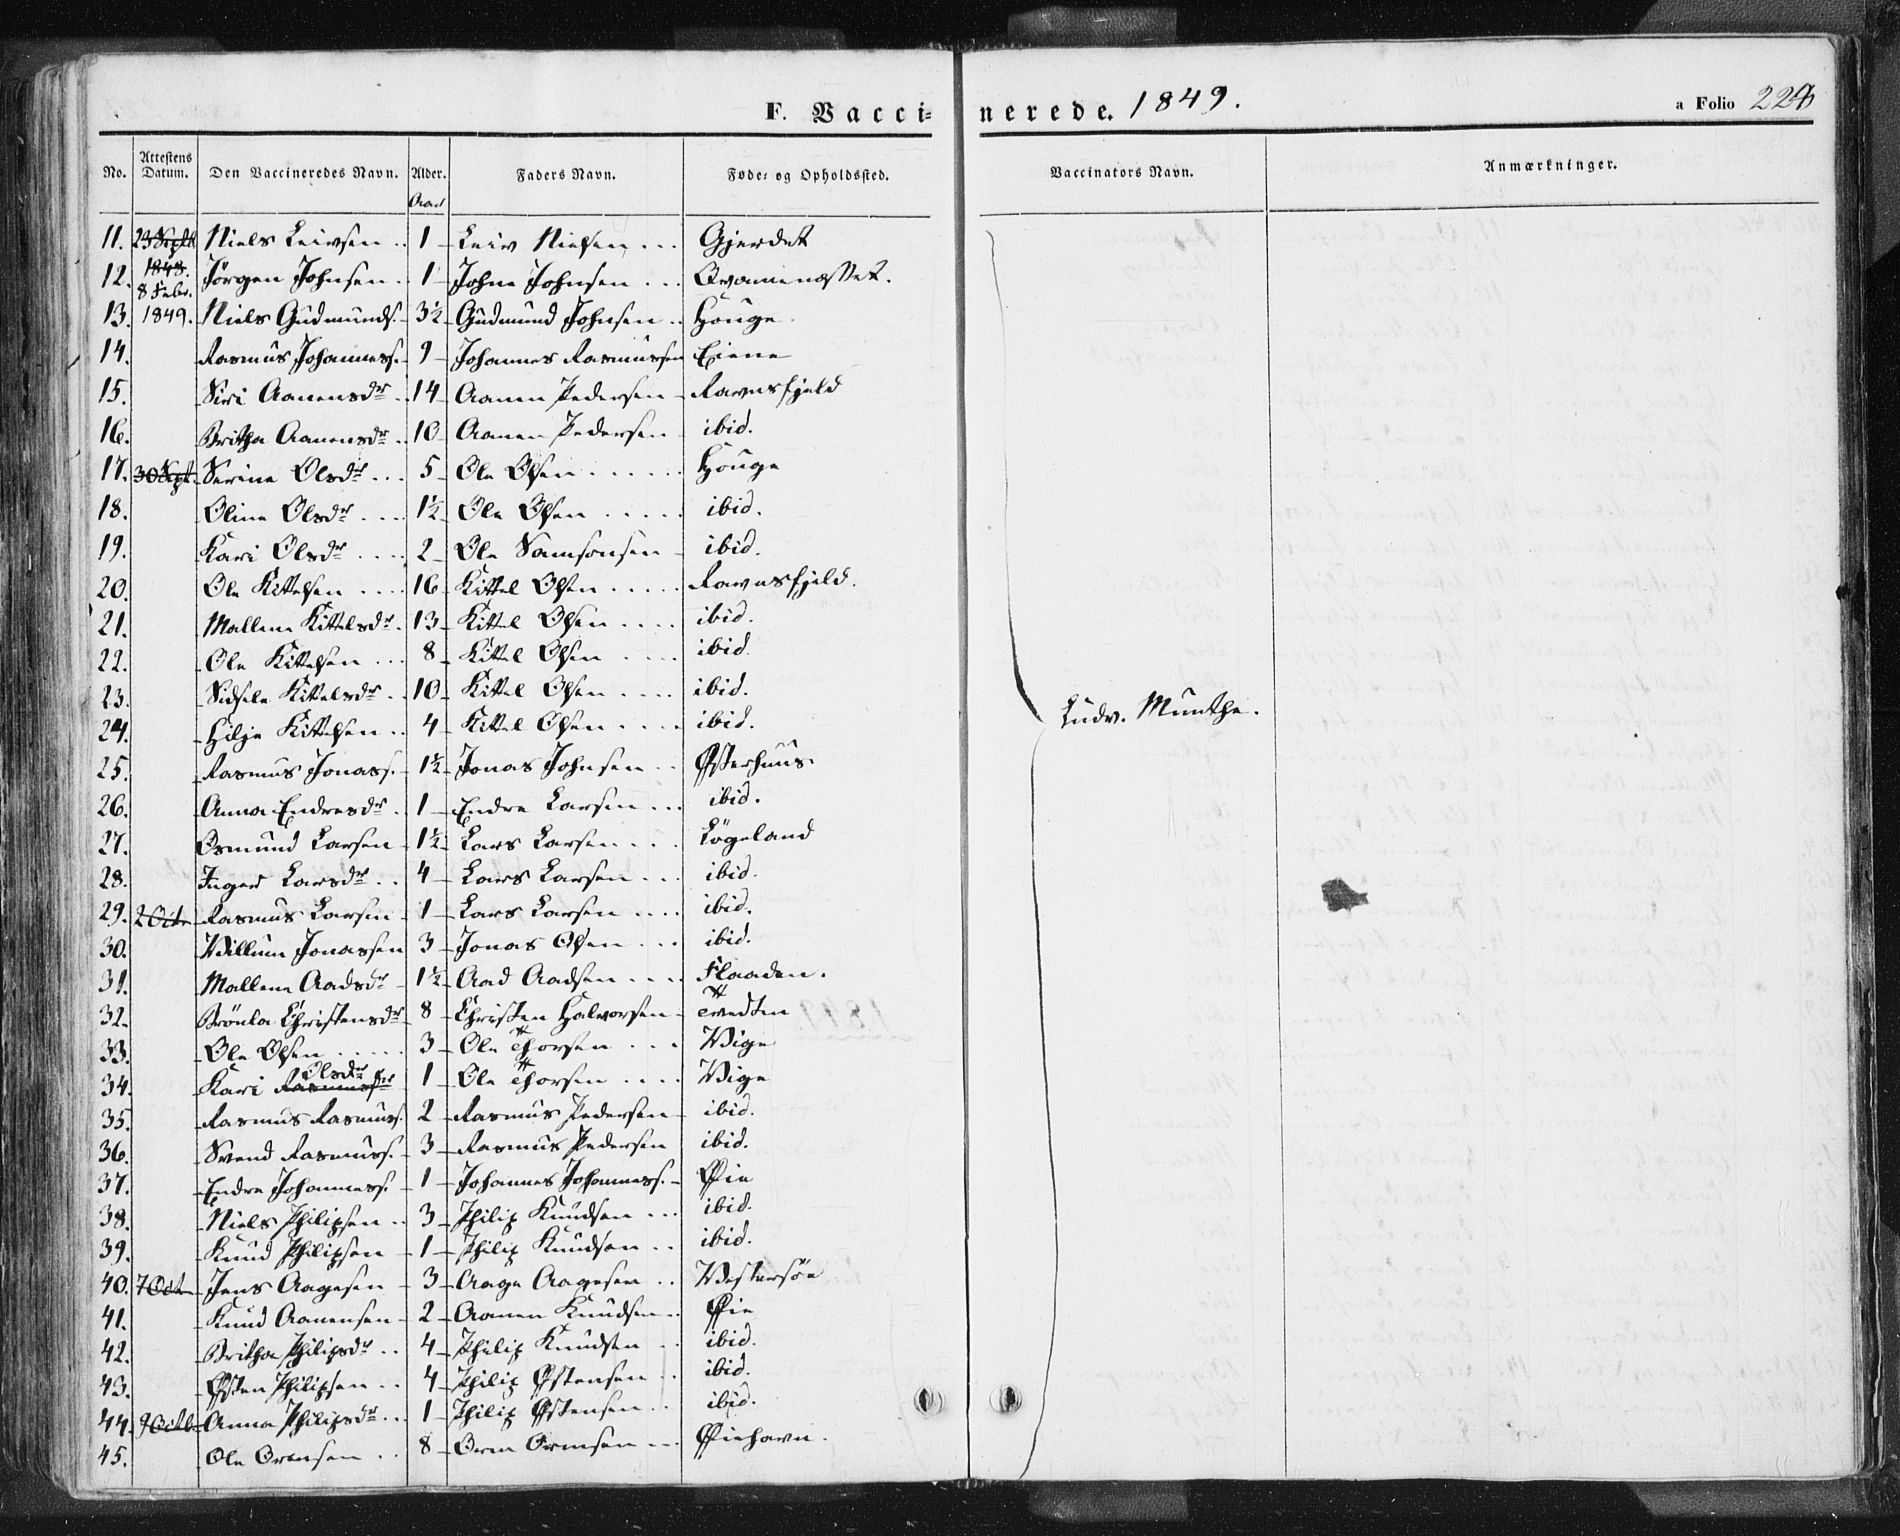 F. Vacci= nerede. 1849.
a Folio
No. Attestens Datum. Den Vaccineredes Navn. Alder. Faders Navn. Føde= og Opholdssted. Vaccinators Navn. Anmærkninger.
Aar
11. 23 Sept. Niels Leivsen .. 1 Leiv Nielsen ... Gjerdet
1848.
12. Jörgen Johnsen . 1 Johne Johnsen ...
8 Febr.
13. 1849. Niels Gudmunds. 3½ Gudmund Johnsen .. Houge
14. Rasmus Johanness. 9 Johannes Rasmussen Eiene
15. Siri Aanensdr 14 Aanen Pedersen Ravnsfjeld
16. Britha Aanensdr .. 10 Aanen Pedersen ibid.
17. 30 Sept. Serine Olsdr ... 5 Ole Olsen ..... Houge
18. Oline Olsdr .... 1½ Ole Olsen ..... ibid.
19. Kari Olsdr .... 2 Ole Samsonsen ibid.
20. Ole Kittelsen .... 16 Kittel Olsen ..... Ravnsfjeld.
21. Mallene Kittelsdr . 13 Kittel Olsen .... ibid.
22. Ole Kittelsen ... 8 Kittel Olsen .... ibid.
23. Sidsele Kittelsdr .. 10 Kittel Olsen .... ibid.
Ludv. Munthe.
24. Hilje Kittelsen .. 4 Kittel Olsen .... ibid.
25. Rasmus Jonass. 1½ Jonas Johnsen .. Østerhuus
26. Anna Endresdr . 1 Endre Larsen ... ibid.
27. Osmund Larsen 1½ Lars Larsen ... Lögeland
28. Inger Larsdr .. 4 Lars Larsen ... ibid.
29. 2 Oct. Rasmus Larsen 1 Lars Larsen .... ibid.
30. Willum Jonassen 3 Jonas Olsen ... ibid.
31. Mallene Aadsdr 1½ Aad Aadsen .... Flaaden.
32. Brönla Christensdr 8 Christen Halvorsen Tvedten
33. Ole Olsen ..... 3 Ole Thorsen ... Wige
Olsdr
34. Kari Rasmusdr 1 Ole Thorsen .... Wige
35. Rasmus Rasmuss. 2 Rasmus Pedersen ibid.
36. Svend Rasmuss. 3 Rasmus Pedersen ibid.
37. Endre Johanness. 1 Johannes Johanness. Øie
38. Niels Philipsen .. 3 Philip Knudsen ... ibid.
39. Knud Philipsen 1 Philip Knudsen .. ibid.
40. 7 Oct. Jens Aagesen 3 Aage Aagesen .. Westersöe
41. Knud Aanensen 2 Aanen Knudsen .. Øie
42. Britha Philipsdr .. 4 Philip Knudsen .. ibid.
43. Østen Philipsen .. 4 Philip Østensen .. ibid.
44. 9 Octb. Anna Philipsdr ... 1 Philip Østensen .. ibid.
45. Ole Ormsen .. 8 Orm Ormsen ... Øiehavn.